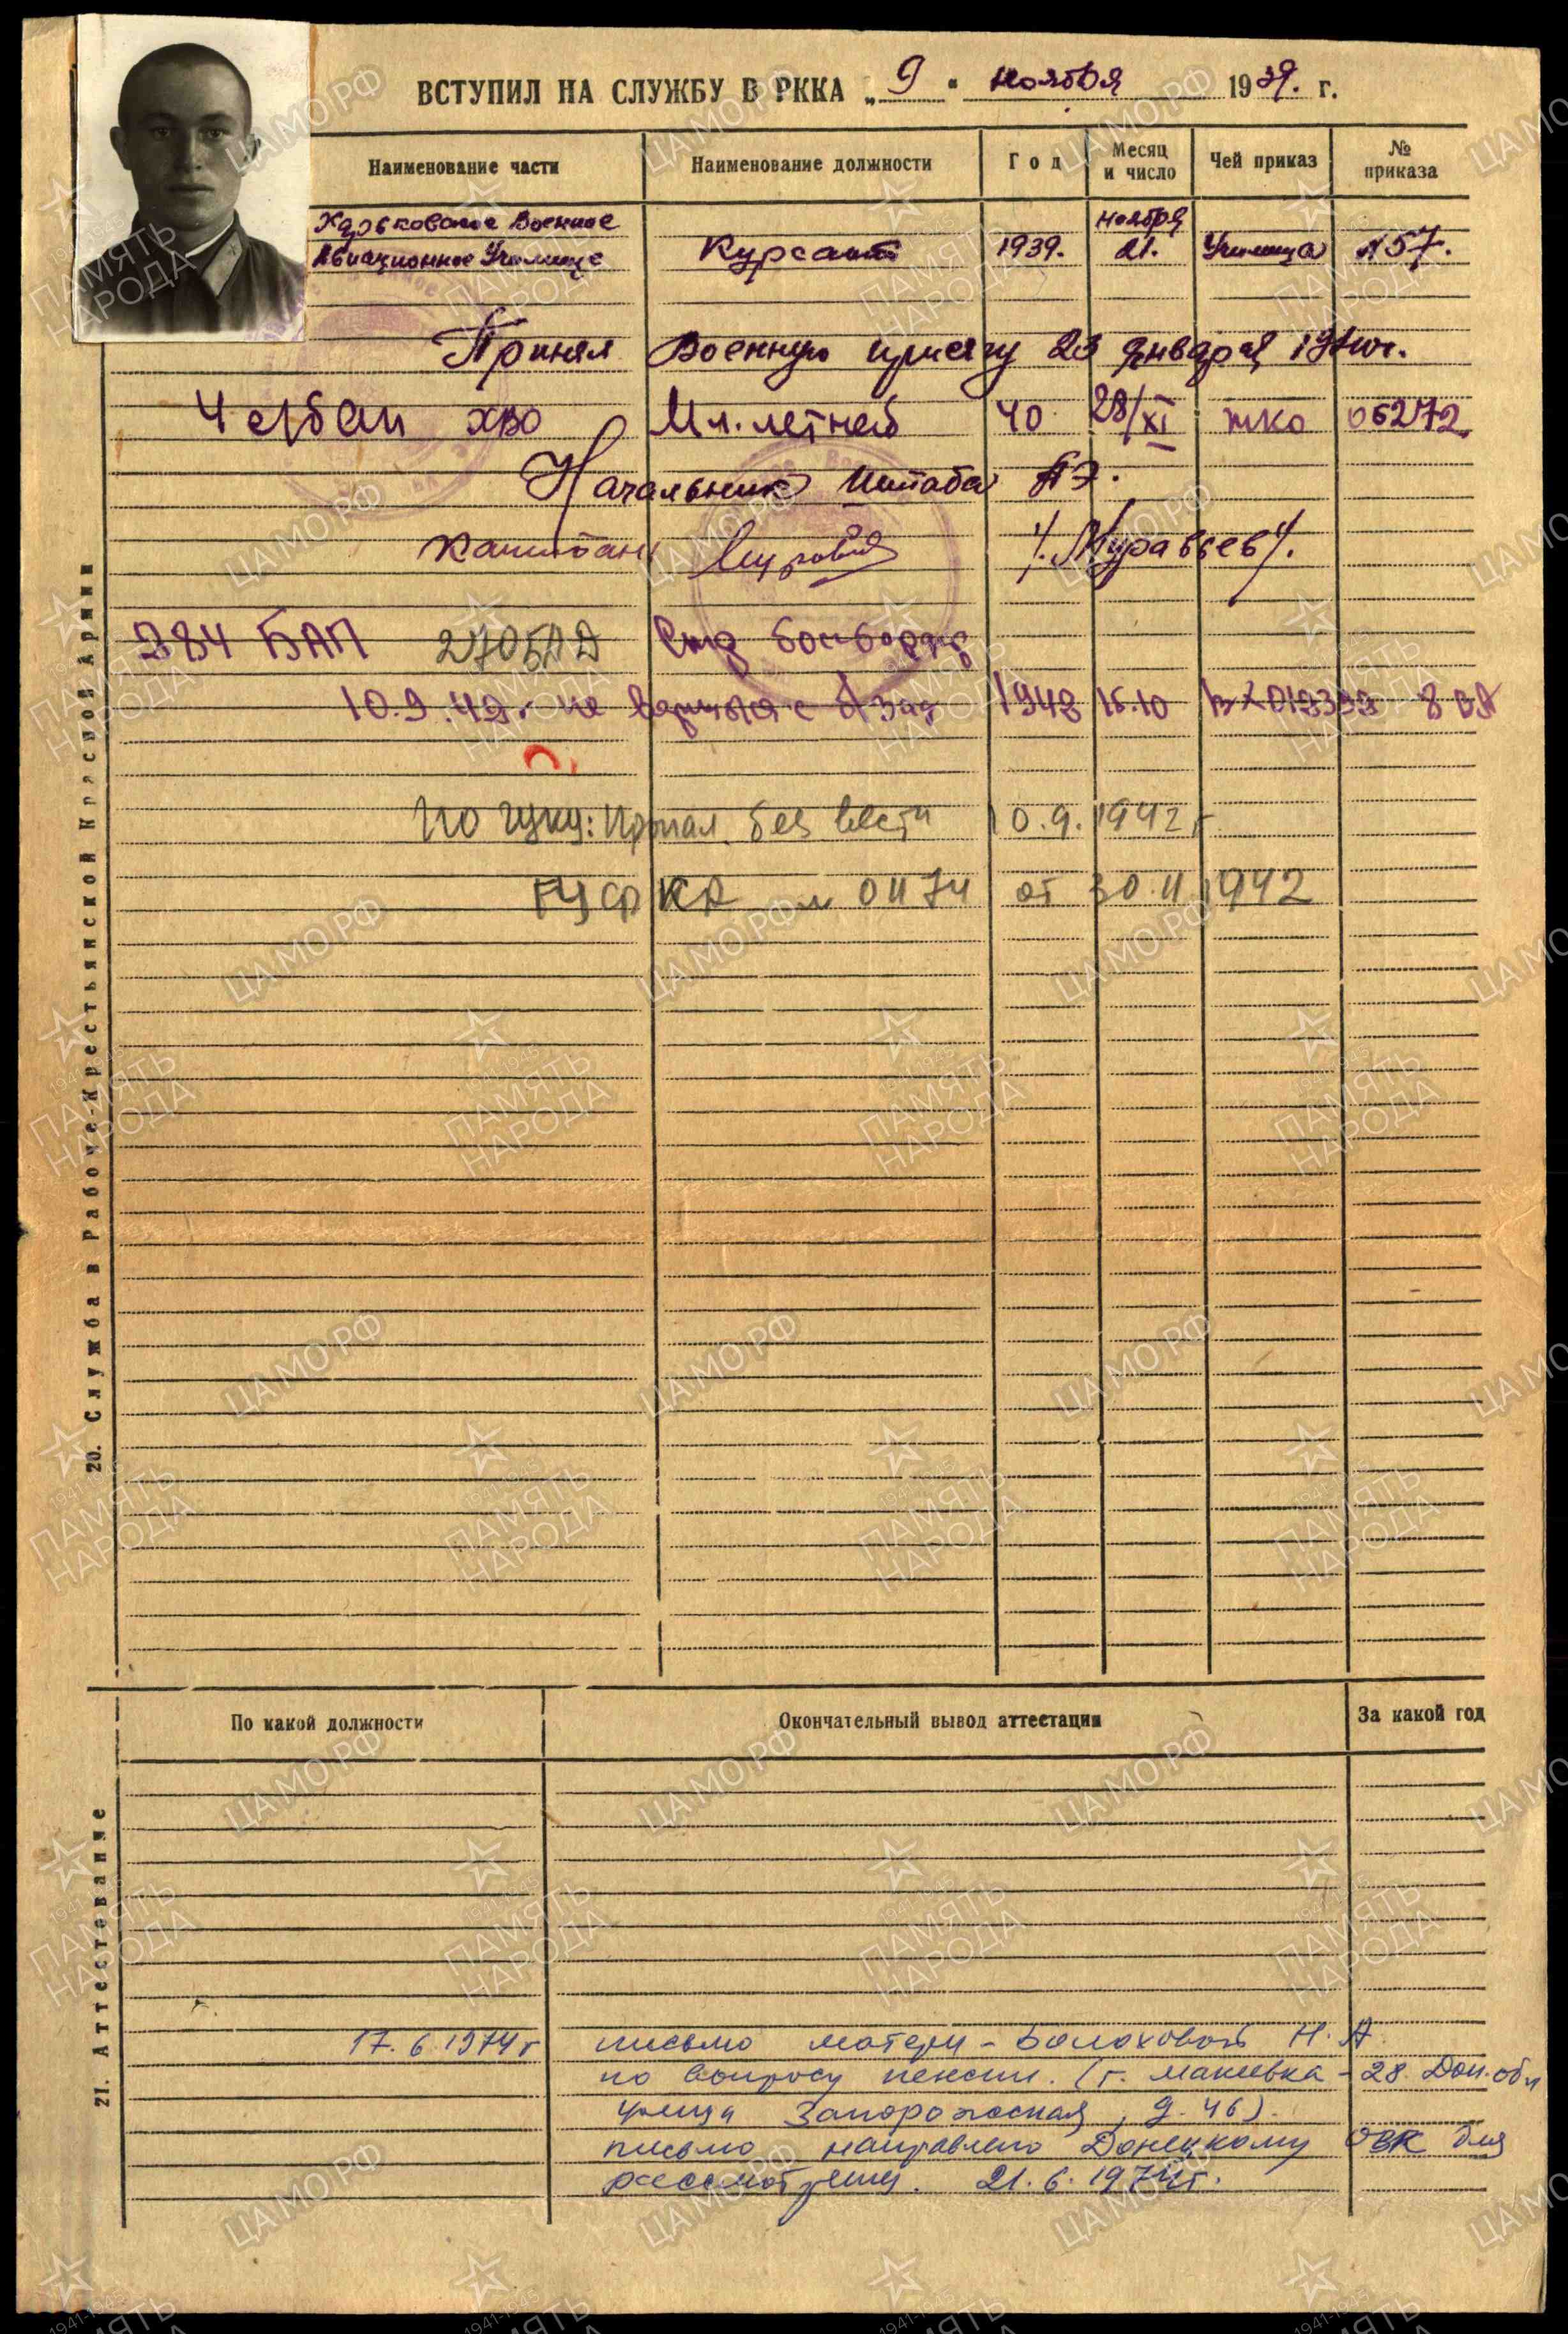 ВСТУПИЛ НА СЛУЖБУ В РККА „9" ноября 1939. г.
Наименование части Наименование должности Год Месяц и число Чей приказ № приказа
Харьковское Военное ноября
Авиационное Училище Курсант 1939. 21. Училища №57.
Принял Военную присягу 23 января 1940г.
ХВО Мл. летнаб 40 28/XI нко 05272
Начальник Штаба АЭ.
Капитан /Муравьев/.
284 БАП 270БАД
10.9.42г. не вернулся с б/зад 1942 15.10 8 ВА
По учету: Пропал без вести 10.9.1942г
ГУФКА № 01174 от 30.11.1942
20. Служба в Рабоче-Крестьянской Красной Армии
По какой должности Окончательный вывод аттестации За какой год
21. Аттестование
17.6.1974г письмо матери - Балоховой Н.А.
по вопросу пенсии. (г. Макеевка - 28 Дон. обл
улица Запорожская, д. 46).
письмо направлено Донецкому ОВК для
рассмотрения. 21.6.1974г.
ЦАМО.РФ
1941-1945
ПАМЯТЬ
НАРОДА